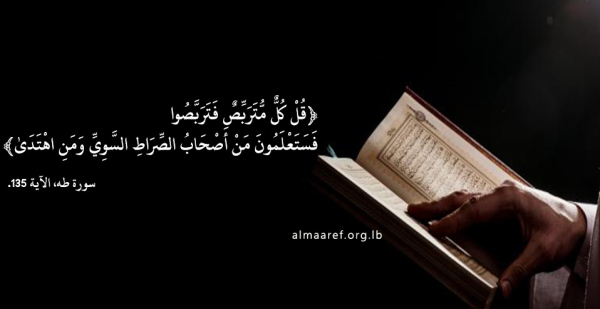 ﴿قُلْ كُلٌّ مُّتَرَبِّصٌ فَتَرَبَّصُوا
فَسَتَعْلَمُونَ مَنْ أَصْحَابُ الصِّرَاطِ السَّوِيِّ وَمَنِ اهْتَدَىٰ﴾
سورة طه، الآية 135.
almaaref.org.lb